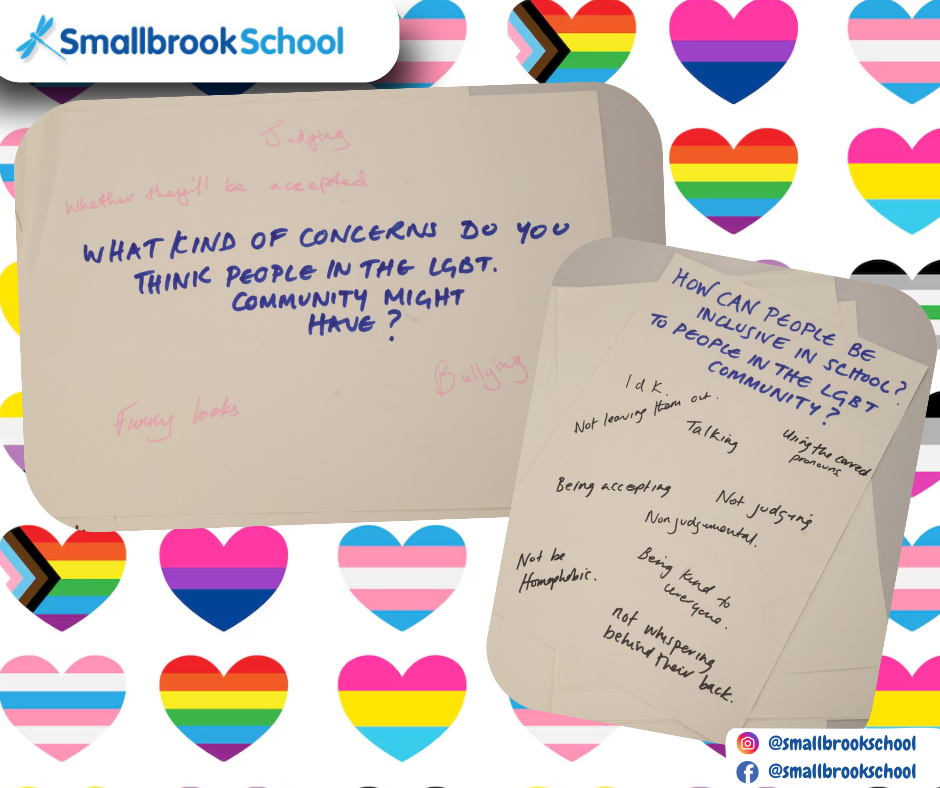 Smallbrook School
Judging
Whether they'll be accepted
WHAT KIND OF CONCERNS DO YOU
THINK PEOPLE IN THE LGBT.
COMMUNITY MIGHT
HAVE ?
Bullying
Funny looks
HOW CAN PEOPLE BE
INCLUSIVE IN SCHOOL?
TO PEOPLE IN THE LGBT
COMMUNITY?
I d K.
Not leaving them out.
Talking
Using the correct
pronouns
Being accepting
Not judging
Non judgmental.
Not be
Homophobic.
Being kind to
everyone.
not whispering
behind their back.
@smallbrookschool
@smallbrookschool